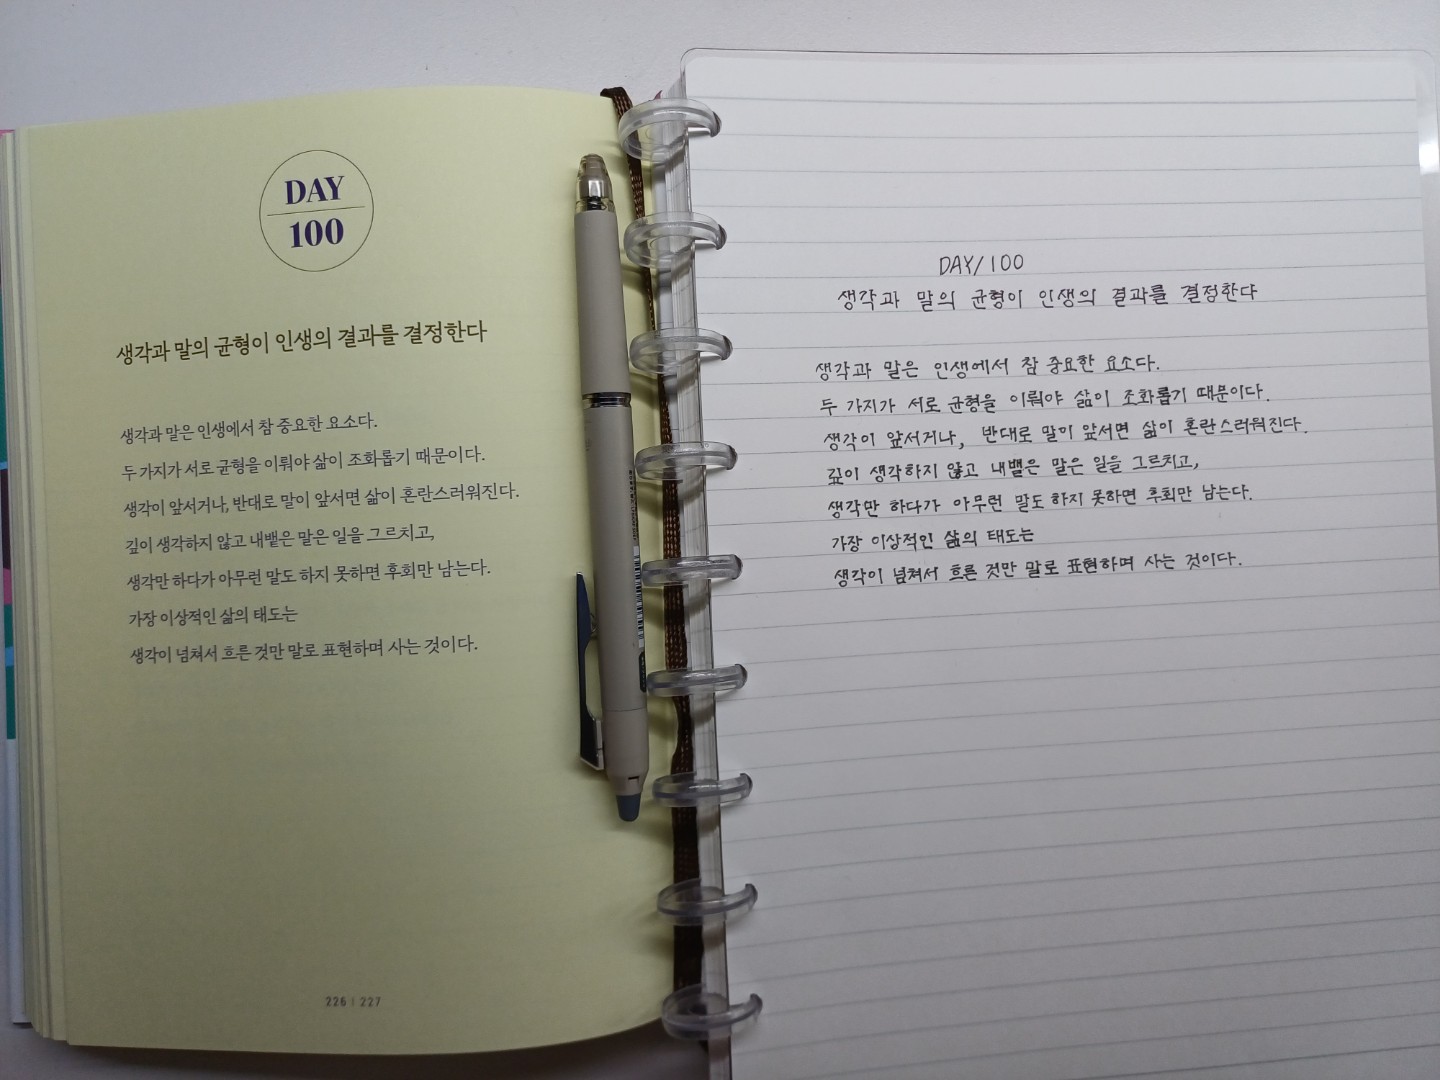 DAY
100
생각과 말의 균형이 인생의 결과를 결정한다
생각과 말은 인생에서 참 중요한 요소다.
두 가지가 서로 균형을 이뤄야 삶이 조화롭기 때문이다.
생각이 앞서거나, 반대로 말이 앞서면 삶이 혼란스러워진다.
깊이 생각하지 않고 내뱉은 말은 일을 그르치고,
생각만 하다가 아무런 말도 하지 못하면 후회만 남는다.
가장 이상적인 삶의 태도는
생각이 넘쳐서 흐른 것만 말로 표현하며 사는 것이다.
226 | 227
DAY/100
생각과 말의 균형이 인생의 결과를 결정한다
생각과 말은 인생에서 참 중요한 요소다.
두 가지가 서로 균형을 이뤄야 삶이 조화롭기 때문이다.
생각이 앞서거나, 반대로 말이 앞서면 삶이 혼란스러워진다.
깊이 생각하지 않고 내뱉은 말은 일을 그르치고,
생각만 하다가 아무런 말도 하지 못하면 후회만 남는다.
가장 이상적인 삶의 태도는
생각이 넘쳐서 흐른 것만 말로 표현하며 사는 것이다.